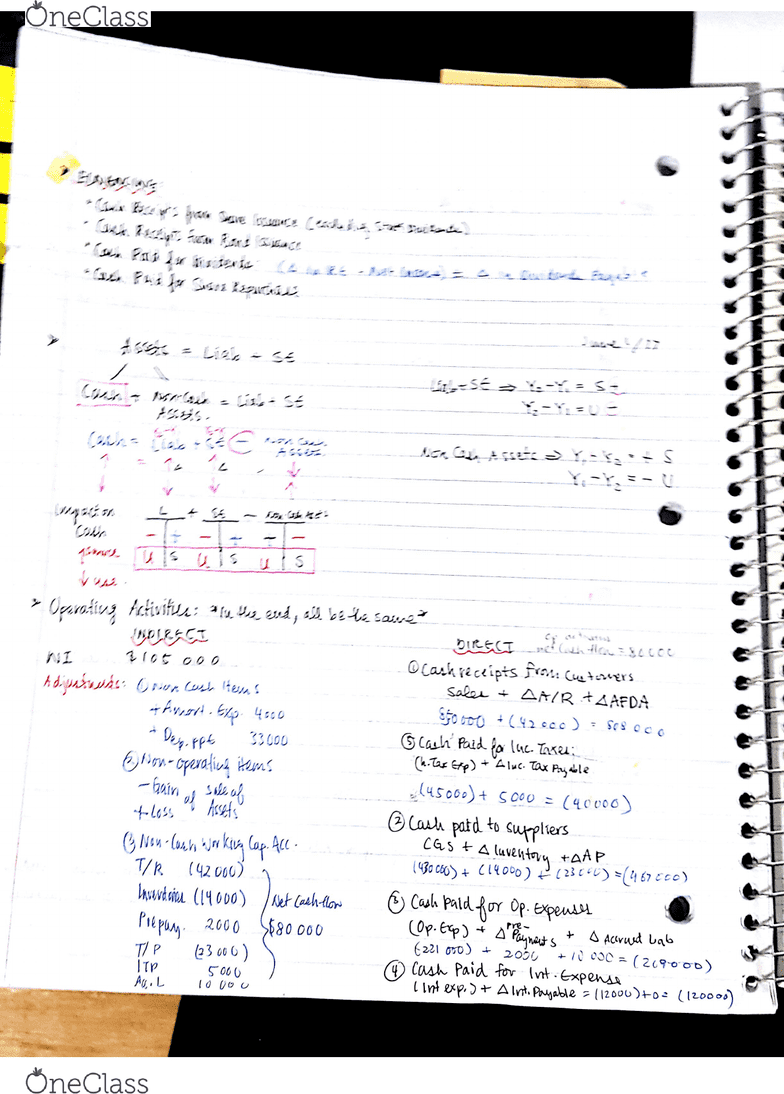 OneClass
* Cash Receipts from Share Issuance (excluding Stock Dividends)
* Cash Receipts from Bond Issuance
* Cash Paid for Dividends: = Δ in Dividend Payable
* Cash Paid for Share
Assets = Liab + SE
Cash + Non-Cash Assets = Liab + SE
Cash = Liab + SE - Non Cash Assets
Liab + SE ⇒ Y₂-Y₁ = S
Y₂-Y₁ = U
Non Cash Assets ⇒ Y₁-Y₂ = + S
Y₁-Y₂ = - U
Impact on L + SE - Non Cash
Cash - + - + + -
U S U S U S
↓ use.
> Operating Activities: *in the end, all be the same*
INDIRECT
NI 105 000
Adjustments: ① Non Cash Items
+ Amort. Exp. 4000
+ Dep. PPE 33000
② Non-operating items
- Gain of sale of
+ Loss of Assets
③ Non-Cash Working Cap. Acc.
T/R (42 000)
Inventories (14000)
Prepay. 2000
T/P (23 000)
ITP 5000
Ac. L 10 000
Net Cash-flow
$80 000
DIRECT
net cash flow = 80000
① Cash receipts from Customers
Sales + ΔA/R + ΔAFDA
850000 + (42000) = 808 000
⑤ Cash Paid for Inc. Taxes:
+ Δ Inc. Tax Payable
(45000) + 5000 = (40000)
② Cash paid to suppliers
CGS + Δ Inventory + ΔAP
(430000) + (14000) + (23000) = (467000)
③ Cash Paid for Op. Expenses
(Op. Exp) + Δ Pre-Payments + Δ Accrued Liab
+ 2000 + 10 000 = (209000)
④ Cash Paid for Int. Expense
(Int exp.) + Δ Int. Payable = (12000) + 0 = (120000)
OneClass